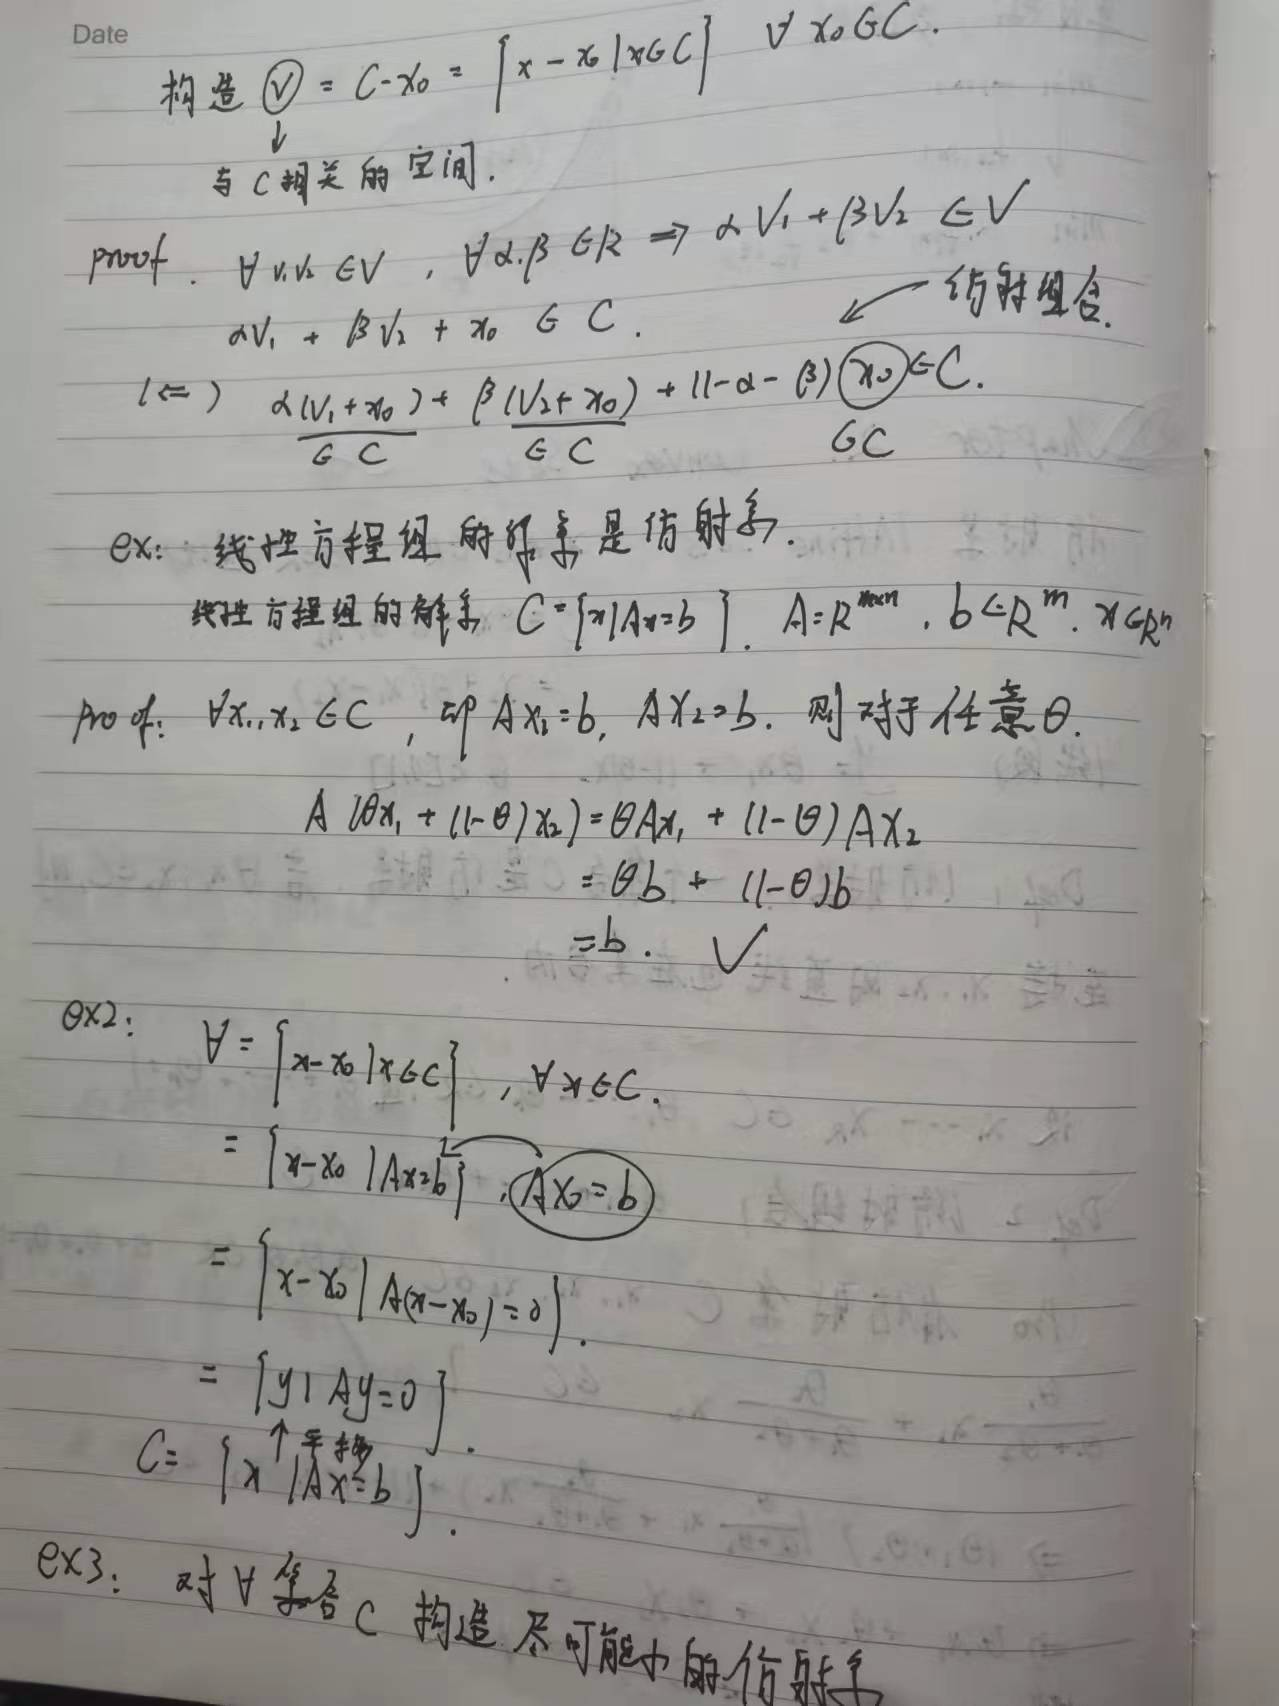 Date
构造 V = C-x₀ = {x - x₀ | x∈C} ∀ x₀∈C.
↓
与C相关的空间.
proof. ∀ v₁v₂ ∈V , ∀ α.β ∈R ⇒ αV₁ + βV₂ ∈ V
αV₁ + βV₂ + x₀ ∈ C. 仿射组合.
(⇐) α(V₁+x₀) + β(V₂+x₀) + (1-α-β) x₀ ∈ C.
∈ C ∈ C ∈C
ex: 线性方程组的解集是仿射集.
线性方程组的解集 C={x|Ax=b}. A=R^{m×n}, b∈R^m. x∈R^n
proof: ∀x₁,x₂∈C, 即 Ax₁=b, AX₂=b. 则对于任意θ.
A(θx₁ + (1-θ)x₂) = θAx₁ + (1-θ)AX₂
= θb + (1-θ)b
= b. ✓
ex2: V = {x-x₀|x∈C}, ∀x∈C.
= {x-x₀ |Ax=b}, Ax₀=b
= {x-x₀ | A(x-x₀)=0}.
= {y| Ay=0}.
↑平移
C= {x |Ax=b}.
ex3: 对∀集合C 构造尽可能小的仿射集